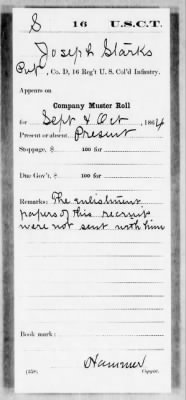 S 16 U.S.C.T.
Joseph Starks
Pvt, Co. D, 16 Reg't U. S. Col'd Infantry.
Appears on
Company Muster Roll
for Sept & Oct, 1864
Present or absent, Present
Stoppage, $ 100 for
Due Gov't, $ 100 for
Remarks: The enlistment
papers of this recruit
were not sent with him
Book mark:
Hammer
(358) Copyist.